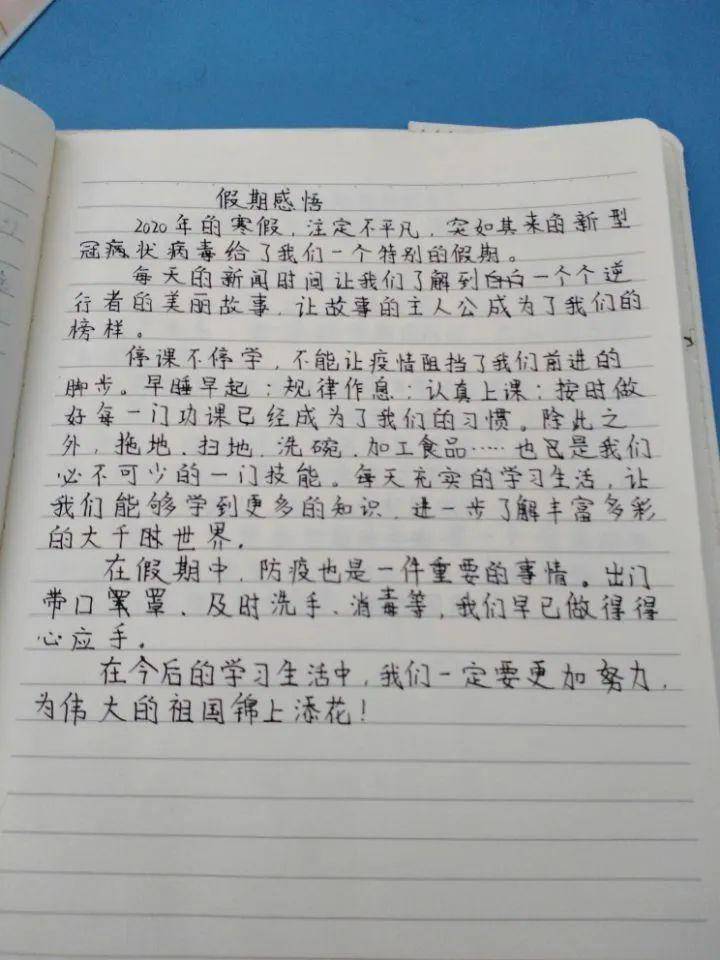 假期感悟
2020年的寒假，注定不平凡，突如其来的新型
冠病状病毒给了我们一个特别的假期。
每天的新闻时间让我们了解到一个个逆
行者的美丽故事，让故事的主人公成为了我们的
榜样。
停课不停学，不能让疫情阻挡了我们前进的
脚步。早睡早起；规律作息；认真上课；按时做
好每一门功课已经成为了我们的习惯。除此之
外，拖地、扫地、洗碗、加工食品……也已是我们
必不可少的一门技能。每天充实的学习生活，让
我们能够学到更多的知识，进一步了解丰富多彩
的大千世界。
在假期中，防疫也是一件重要的事情。出门
带口罩、及时洗手、消毒等，我们早已做得得
心应手。
在今后的学习生活中，我们一定要更加努力，
为伟大的祖国锦上添花！